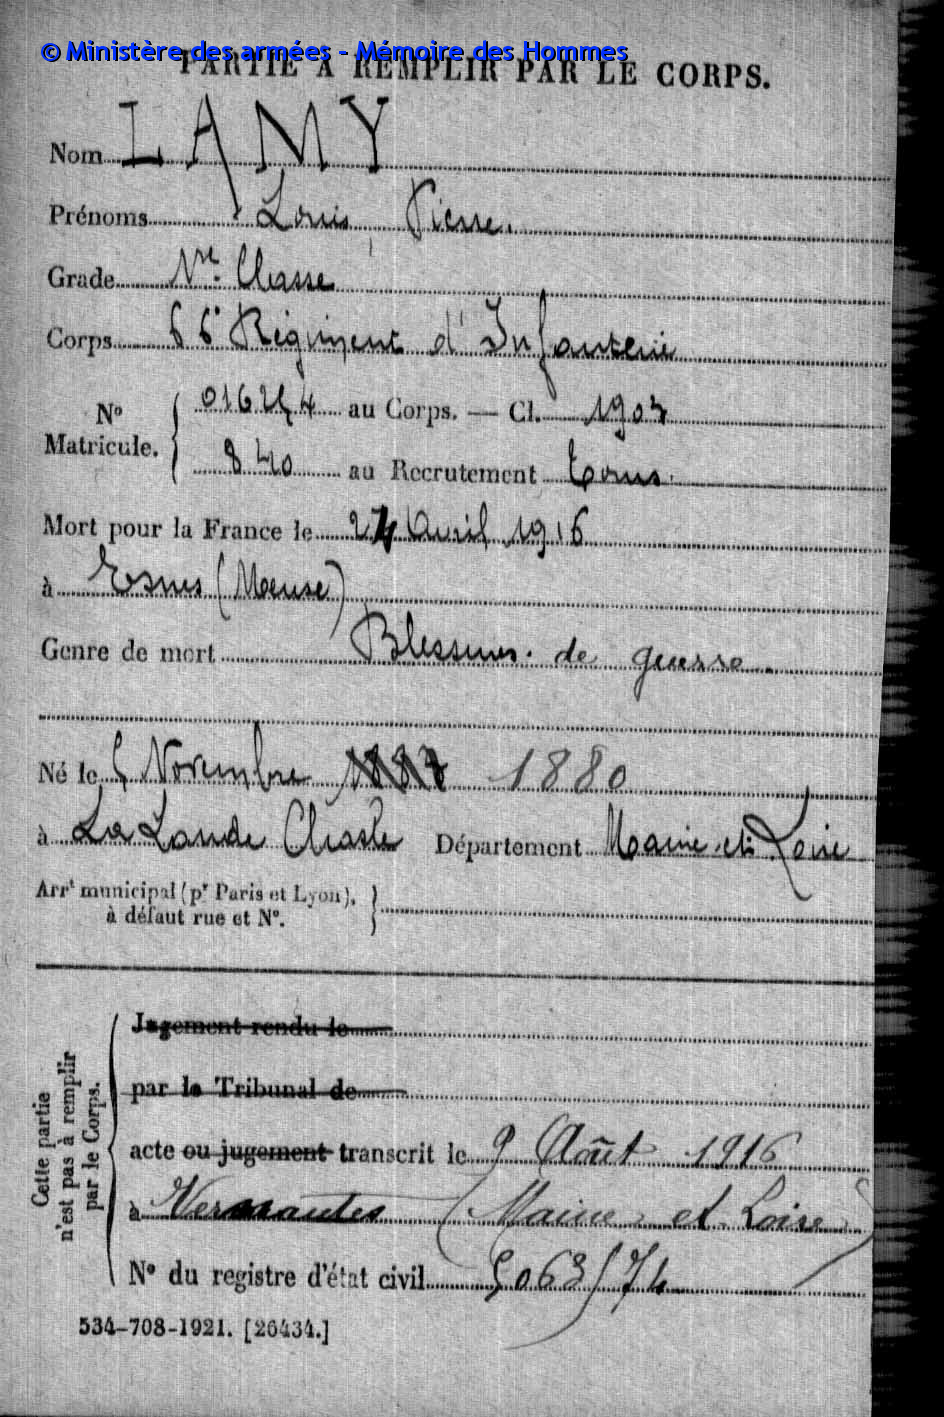 © Ministère des armées - Mémoire des Hommes
PARTIE A REMPLIR PAR LE CORPS.
Nom LAMY
Prénoms Louis Pierre.
Grade Classe
Corps 66e Régiment d'Infanterie
No Matricule. au Corps. — Cl. 190
840 au Recrutement Tours.
Mort pour la France le 24 Avril 1916
à Esnes (Meuse)
Genre de mort Blessures de guerre
Né le 5 Novembre 1887 1880
à La Lande Chasle Département Maine-et-Loire
Arrt municipal (pr Paris et Lyon),
à défaut rue et No.
Cette partie
n'est pas à remplir
par le Corps.
Jugement rendu le
par le Tribunal de
acte ou jugement transcrit le 9 Août 1916
à Vernantes (Maine et Loire)
No du registre d'état civil 5063/74
534-708-1921. [26434.]